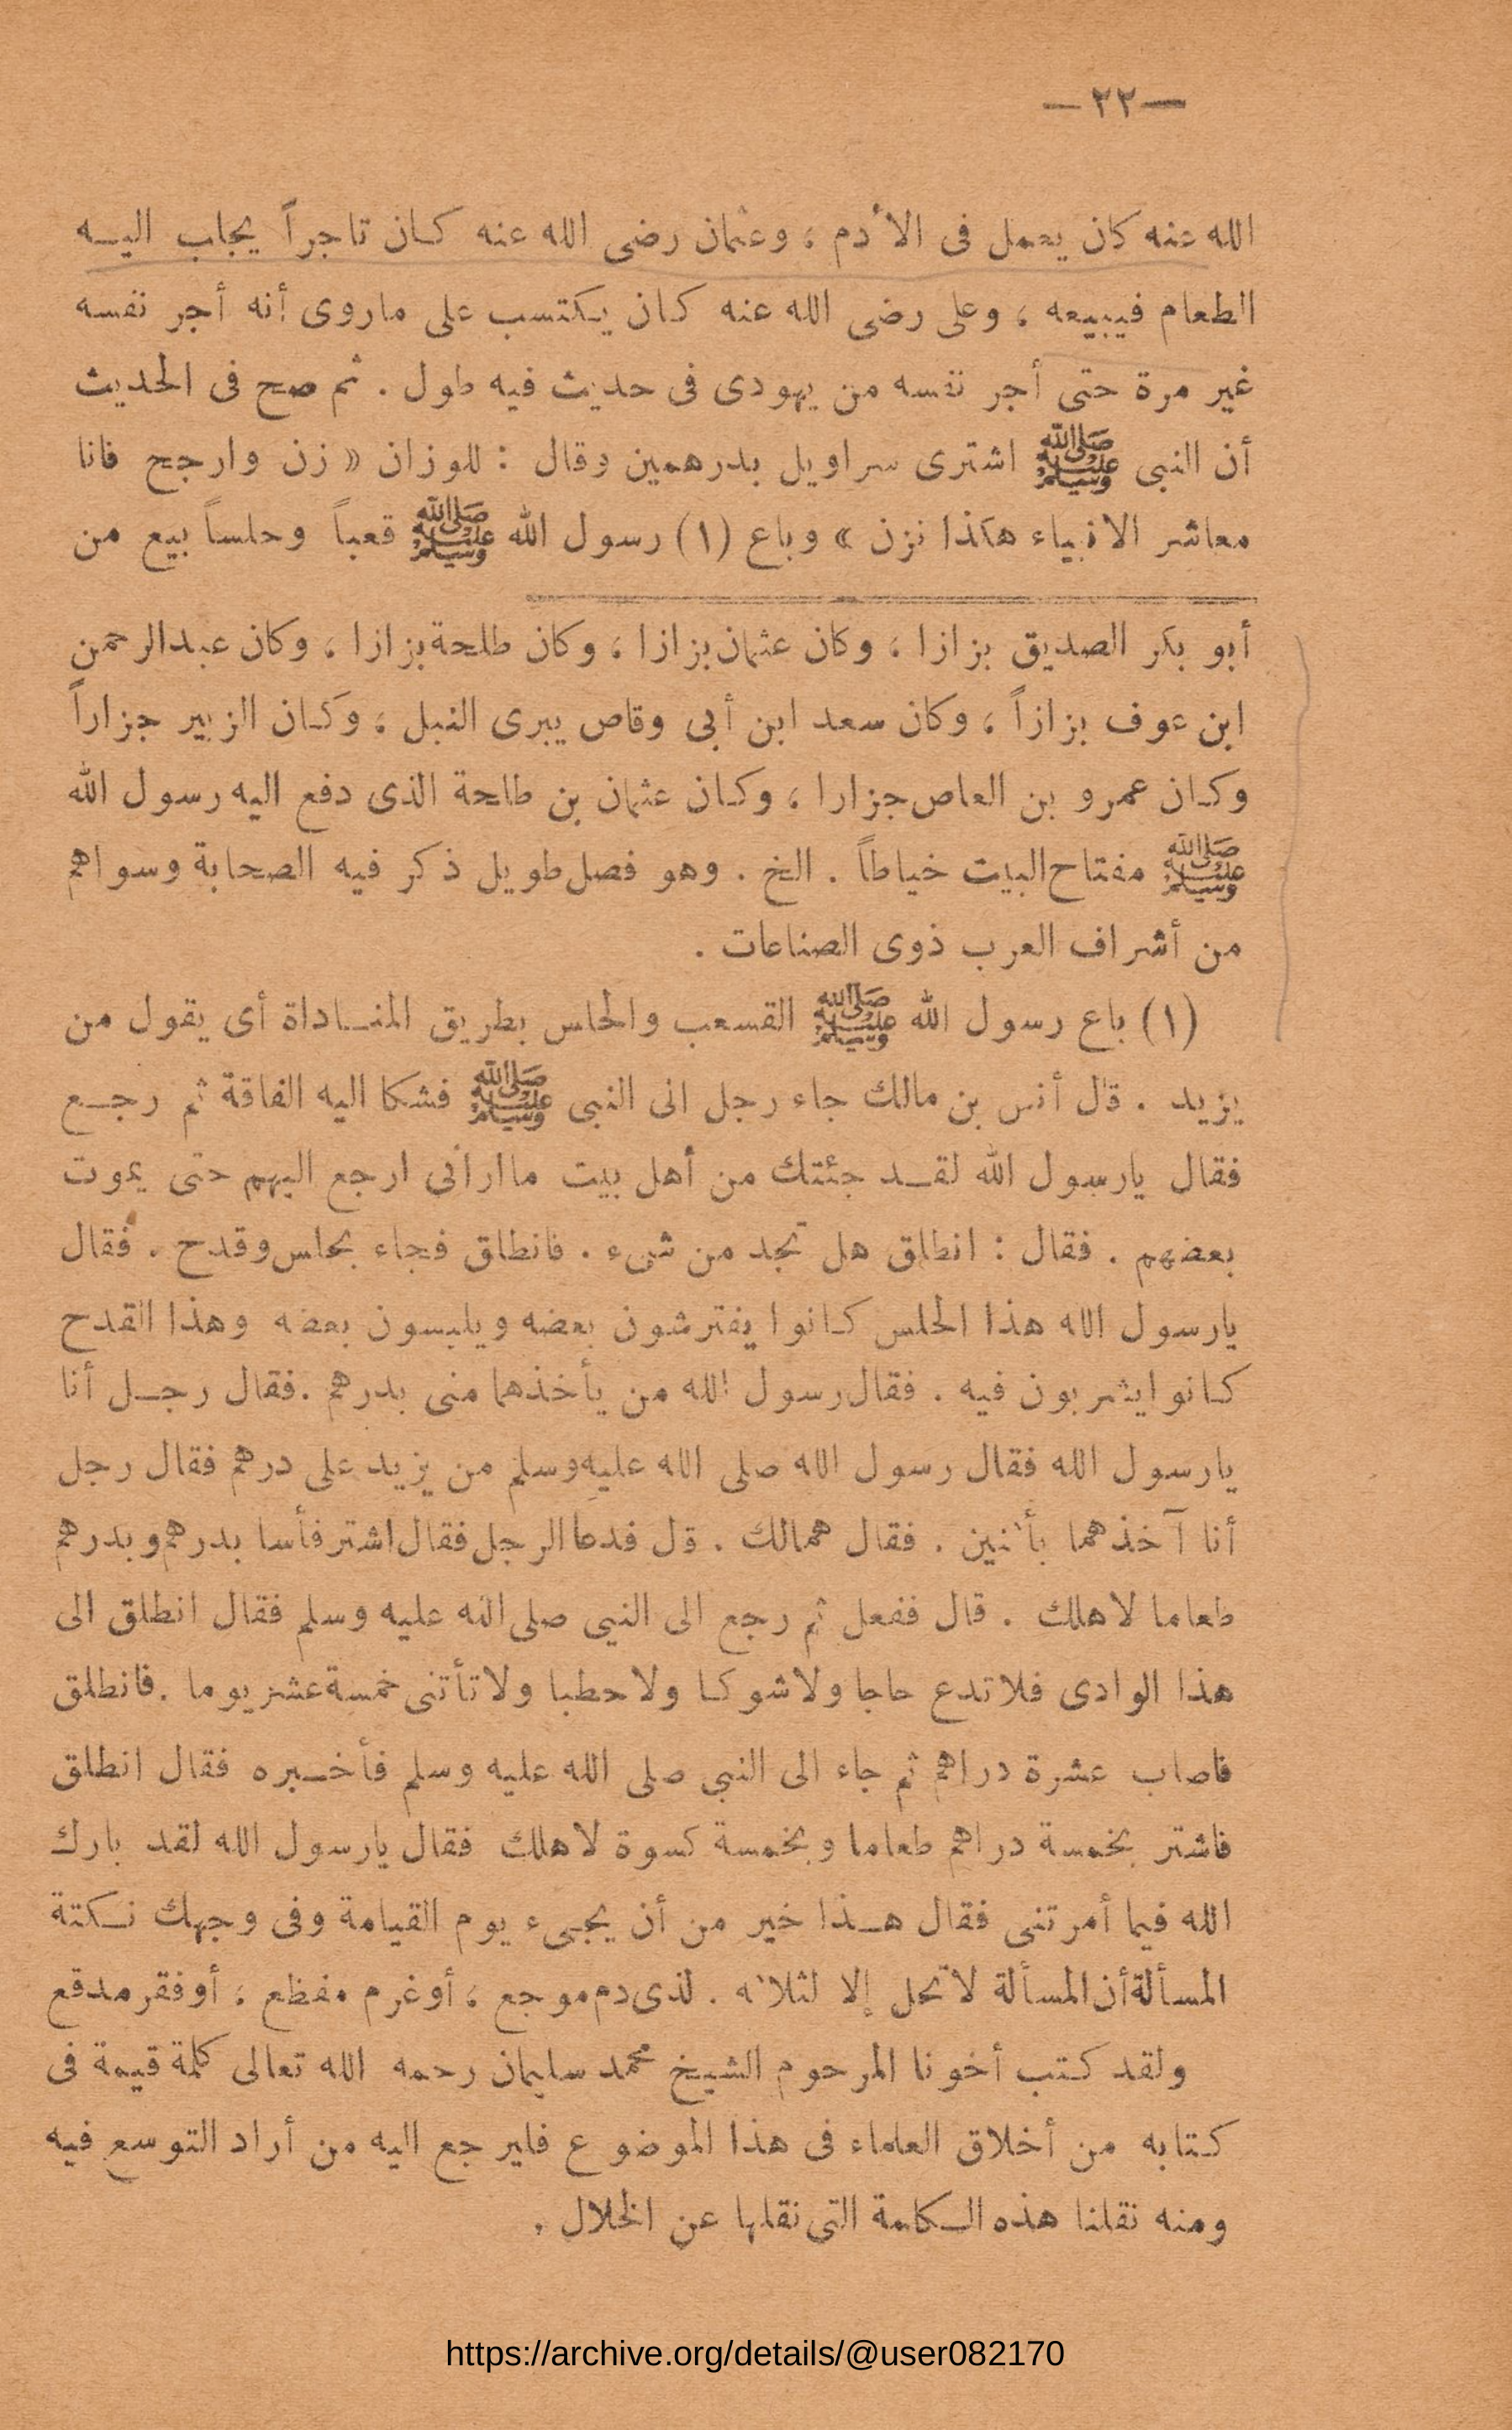 —٢٢—
الله عنه كان يعمل فى الأدم ، وعثمان رضى الله عنه كـان تاجراً يجلب اليـه
الطعام فيبيعه ، وعلى رضى الله عنه كـان يـكتسب على ماروى أنه أجر نفسه
غير مرة حتى أجر نفسه من يهودى فى حديث فيه طول . ثم صح فى الحديث
أن النبى ﷺ اشترى سراويل بدرهمين وقال : للوزان « زن وارجح فانا
معاشر الانبياء هكذا نزن » وباع (١) رسول الله ﷺ قعباً وحلساً بيع من
أبو بكر الصديق بزازا ، وكان عثمان بزازا ، وكان طلحة بزازا ، وكان عبد الرحمن
ابن عوف بزازاً ، وكان سعد ابن أبى وقاص يبرى النبل ، وكـان الزبير جزاراً
وكـان عمرو بن العاص جزارا ، وكـان عثمان بن طلحة الذى دفع اليه رسول الله
ﷺ مفتاح البيت خياطاً . الخ . وهو فصل طويل ذكر فيه الصحابة وسواهم
من أشراف العرب ذوى الصناعات .
(١) باع رسول الله ﷺ القسعب والحلس بطريق المنـاداة أى يقول من
يزيد . قال أنس بن مالك جاء رجل الى النبى ﷺ فشكا اليه الفاقة ثم رجـع
فقال يارسول الله لقـد جئتك من أهل بيت ماارانى ارجع اليهم حتى يموت
بعضهم . فقال : انطلق هل تجد من شىء . فانطلق فجاء بحلس وقدح . فقال
يارسول الله هذا الحلس كـانوا يفترشون بعضه ويلبسون بعضه وهذا القدح
كـانوا يشربون فيه . فقال رسول الله من يأخذهما منى بدرهم . فقال رجـل أنا
يارسول الله فقال رسول الله صلى الله عليه وسلم من يزيد على درهم فقال رجل
أنا آخذهما بأثنين . فقال همالك . قال فدعا الرجل فقال اشتر فأسا بدرهم وبدرهم
طعاما لاهلك . قال ففعل ثم رجع الى النبى صلى الله عليه وسلم فقال انطلق الى
هذا الوادى فلا تدع حاجا ولا شوكـا ولا حطبا ولا تأتنى خمسة عشر يوما . فانطلق
فاصاب عشرة دراهم ثم جاء الى النبى صلى الله عليه وسلم فأخـبره فقال انطلق
فاشتر بخمسة دراهم طعاما وبخمسة كسوة لاهلك فقال يارسول الله لقد بارك
الله فيما أمرتنى فقال هـذا خير من أن يجىء يوم القيامة وفى وجهك نـكتة
المسألة أن المسألة لا تحل إلا لثلاثه . لذى دم موجع ، أو غرم مفظع ، أو فقر مدقع
ولقد كـتب أخونا المرحوم الشيخ محمد سليمان رحمه الله تعالى كلمة قيمة فى
كـتابه من أخلاق العلماء فى هذا الموضوع فليرجع اليه من أراد التوسع فيه
ومنه نقلنا هذه الـكلمة التى نقلها عن الخلال .
https://archive.org/details/@user082170